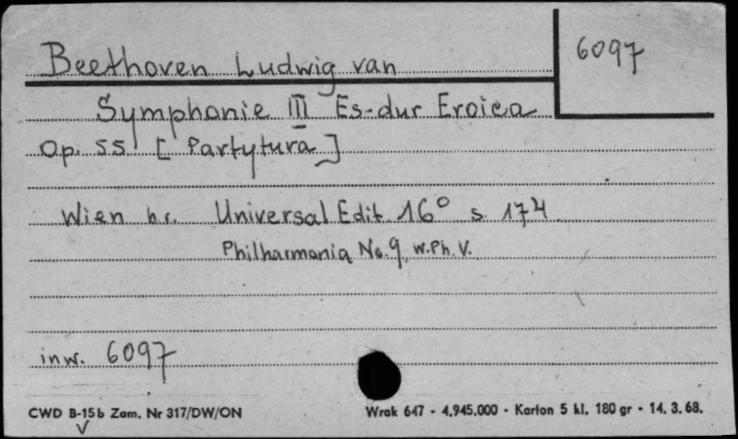 Beethoven Ludwig van
6097
Symphonie III Es-dur Eroica
Op. 55 [Partytura]
Wien br. Universal Edit. 16° s. 174
Philharmonia No. 9. W.Ph.V.
inw. 6097
CWD B-15b Zam. Nr 317/DW/ON
V
Wrak 647 - 4.945.000 - Karton 5 kl. 180 gr - 14. 3. 68.